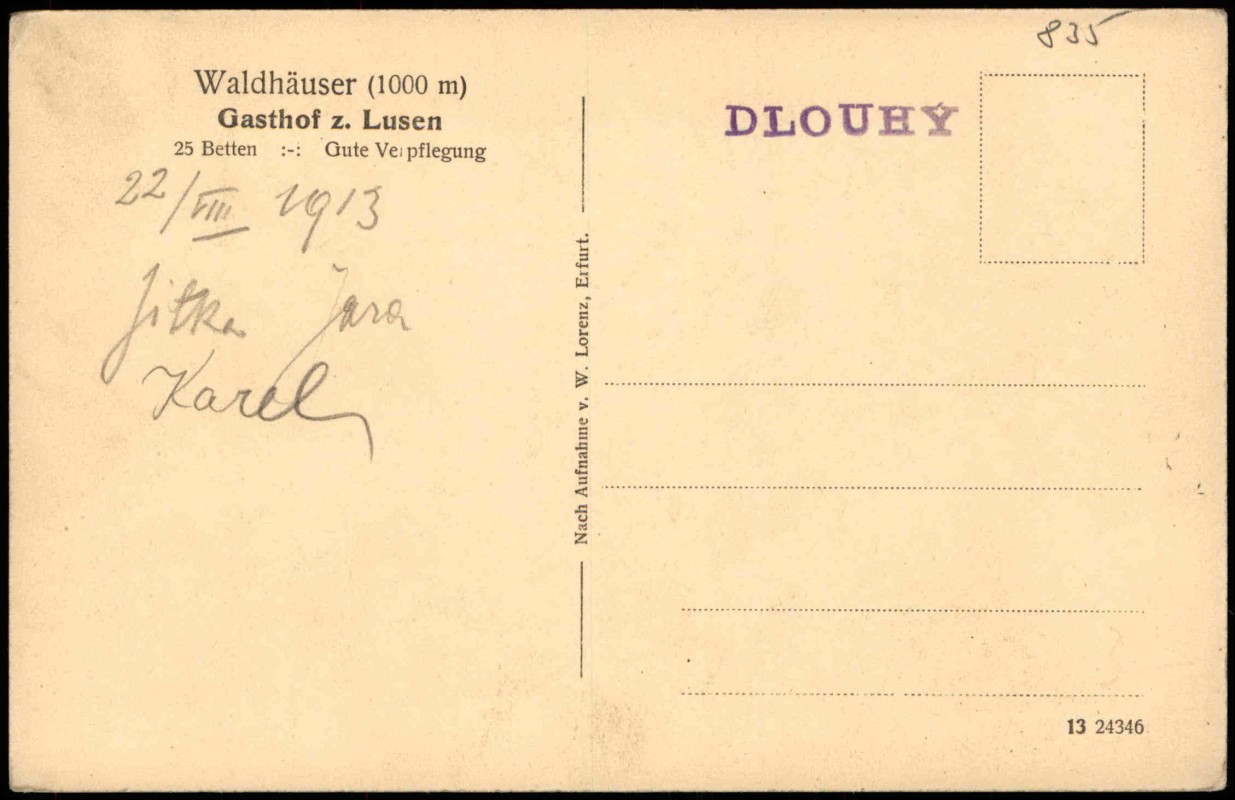 835
Waldhäuser (1000 m)
Gasthof z. Lusen
25 Betten :-: Gute Verpflegung
22/VIII 1913
Jitka Jara
Karel
Nach Aufnahme v. W. Lorenz, Erfurt.
DLOUHÝ
13 24346